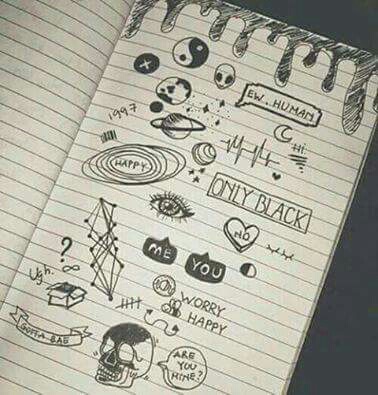 EW.. HUMAN
1997
Hi
HAPPY
ONLY BLACK
NO
ME
YOU
?
Ugh.
WORRY
HAPPY
GOTTA BAE
ARE
YOU
MINE?